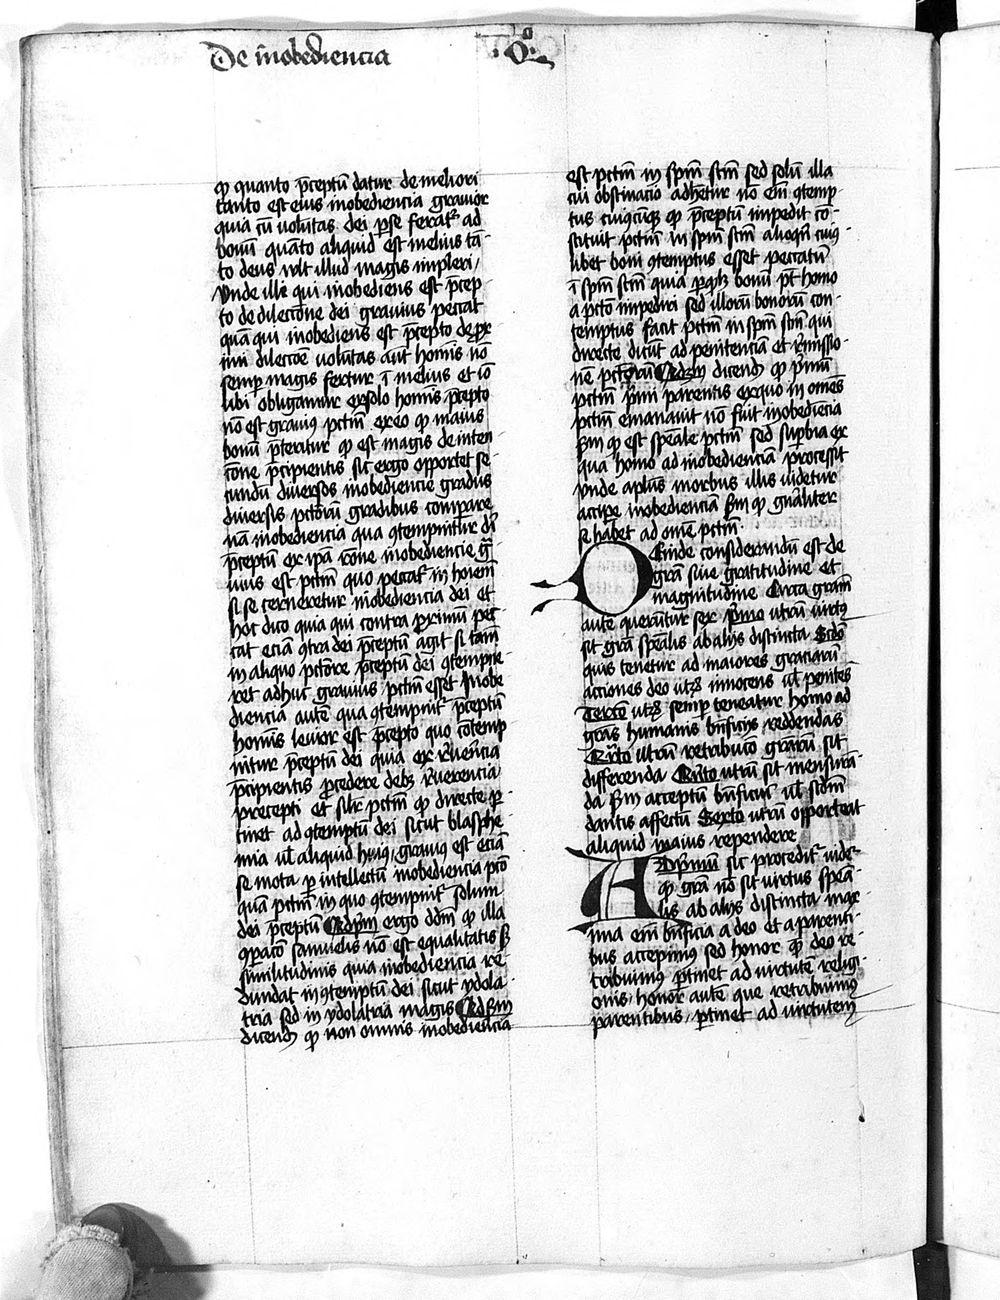 De inobediencia
.Q.
qͣ quanto p̄ceptū datur de meliori
tanto est eius inobediencia gravior
quia cū volūtas dei p̱se ferat᷑ ad
bonū quāto aliquid est melius tā-
to deus vult illud magis impleri /
Vnde ille qui inobediens est p̄cep-
to de dilectōne dei gravius peccat
quā qui inobediens est p̄cepto de prox
imi dilectōe volūtas autē homīs nō
semp̱ magis fertur ī melius et iō
ubi obligamur ex solo homīs p̄cepto
nō est gravius pctm̄ ex eo qꝫ maius
bonū p̄teritur qꝫ est magis de inten
cōne p̄cipientis sic ergo opportet se-
cundū diversos inobediencie gradus
diversis pctōrū gradibus compare
nā inobediencia qua ꝯtempnitur di
p̄ceptū ex ip̄a rōne inobediencie ḡ
vius est pctm̄ quo peccat᷑ in hoīem
si se cerneretur inobediencia dei et
hoc dico quia qui contra primū pec
cat eciā ꝯtra dei p̄ceptū agit si tam̄
in aliquo pctōre p̄ceptū dei ꝯtempne
ret adhuc gravius pctm̄ esset Inobe
diencia autē qua ꝯtempnit᷑ p̄ceptū
homīs levior est p̄cepto quo cōtemp
nitur p̄ceptū dei quia ex rēverēcia
p̄cipientis p̱cedere debꝫ rēverencia
precepti et silr pctm̄ qꝫ directe p̱-
tinet ad ꝯtemptū dei sicut blasphe-
mia vl̄ aliquid huiꝰ gravius est eciā
se mota p̱ intellectū inobediencia pctō
quā pctm̄ in quo ꝯtempnit᷑ solum
dei p̄ceptū Ad p̄m ergo dd̄m qꝫ illa
ꝯparacō samuelis nō est equalitatis sꝫ
similitudinis quia inobediencia re-
dundat in ꝯtemptū dei sicut ydola-
tria sed in ydolatria magis Ad s̄m
dicend̄ qꝫ non omnis inobediencia
est pctm̄ in spm̄ scm̄ sed solū illa
cui obstinacio adhetur nō em̄ ꝯtemp-
tus cuiuscūqꝫ qꝫ p̄ceptū impedit cō-
stituit pctm̄ in spm̄ scm̄ alioqn̄ cuiꝰ-
libet boni ꝯtemptus esset peccatū
ī spm̄ scm̄ quia p̱ qdlꝫ bonū pt̄ homo
a pctō impediri sed illorū bonorū con-
temptus facit pctm̄ in spm̄ scm̄ qui
directe ducūt ad penitenciā et remissio-
nē pctōrū Ad 3m dicend̄ qꝫ p̄mū
pctm̄ primi parentis ex quo in omēs
pctm̄ emanauit nō fuit inobediēcia
s̄m qꝫ est speāle pctm̄ sed sup̱bia ex
qua homo ad inobedienciā processit
Vnde aplūs morbus illis videtur
accipe inobedienciā s̄m qꝫ gn̄aliter
se habet ad omē pctm̄
Deinde considerandū est de
grā sive gratitudine et
ingratitudine Circa grām
autē querūtur sex p̄mo utrū virtꝰ
sit grā spealis ab aliis distincta Scdo
quis tenetur ad maiores graciarū
acciones deo utꝫ innocens vl̄ penites
Tercō utꝫ semp̱ teneatur homo ad
grās humanis bn̄ficiis reddendas
Qrto utrū retribucō grārū sit
differenda Qnto utrū sit mensurā-
da s̄m acceptū bn̄ficiū vl̄ s̄cdm
dantis affectū Sexto utrū opporteat
aliquid maius rependere
Ad p̄mū sic procedit᷑ vide-
t᷑ qꝫ grā nō sit virtus speā-
lis ab aliis distincta max-
ima em̄ bn̄ficia a deo et a parenti-
bus accepimus sed honor quē deo re-
tribuimus p̱tinet ad virtutē religi-
onis / honor autē que retribuimꝰ
parentibus / p̱tinet ad virtutem